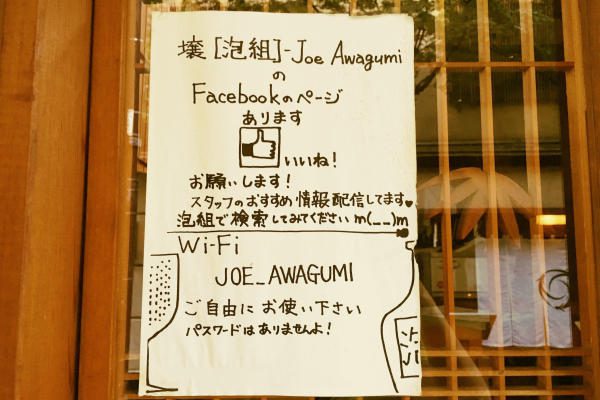 壌[泡組]-Joe Awagumi
の
Facebookのページ
あります
いいね!
お願いします!
スタッフのおすすめ情報配信してます♥
泡組で検索してみてください m(__)m
Wi-Fi
JOE_AWAGUMI
ご自由にお使い下さい
パスワードはありませんよ!